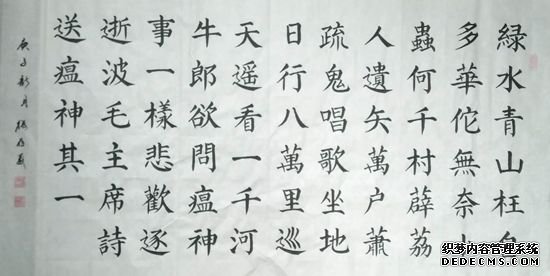 綠水青山枉自
多華佗無奈小
蟲何千村薜荔
人遺矢萬户蕭
疏鬼唱歌坐地
日行八萬里巡
天遥看一千河
牛郎欲問瘟神
事一樣悲歡逐
逝波毛主席詩
送瘟神其一
庚子
织梦内容管理系统
DEDECMS.COM